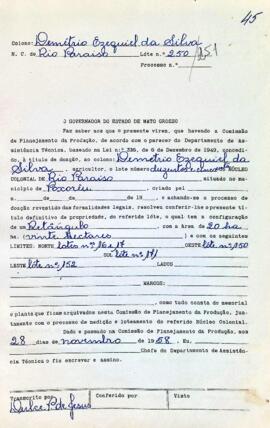 45
Colono: Demétrio Ezequiel da Silva
N. C. de Rio Paraiso Lote n.º 250
/251
Processo n.º
O GOVERNADOR DO ESTADO DE MATO GROSSO
Faz saber aos que o presente virem, que havendo a Comissão
de Planejamento da Produção, de acordo com o parecer do Departamento de As-
sistência Técnica, baseado na Lei n.º 336, de 6 de Dezembro de 1949, concedi-
do, à título de doação, ao colono: Demétrio Ezequiel da
Silva, agricultor, o lote número duzentos e NÚCLEO
COLONIAL DE Rio Paraiso situado no mu-
nicípio de Poxoreu, criado pel
de de 19 , e achando-se o processo de
doação revestido das formalidades legais, resolveu conferir-lhe o presente tí-
tulo definitivo de propriedade, do referido lote, o qual tem a configuração
de um Retângulo com a Área de 20 ha
(vinte Hectares) e com os seguintes
LIMITES: NORTE lotes nºs 16 e 17 OESTE lote nº 150
SUL lote nº
LESTE lote nº 152 LADOS
MARCOS:
, como tudo consta do memorial
e planta que ficam arquivados nesta Comissão de Planejamento da Produção, jun-
tamente com o processo de medição e loteamento do referido Núcleo Colonial.
Dado e passado na Comissão de Planejamento da Produção, aos
28 dias de novembro de 1958. Eu,
Chefe do Departamento de Assistên-
cia Técnica o fiz escrever e assino.
Transcrito por
Conferido por
Visto
de Jesus